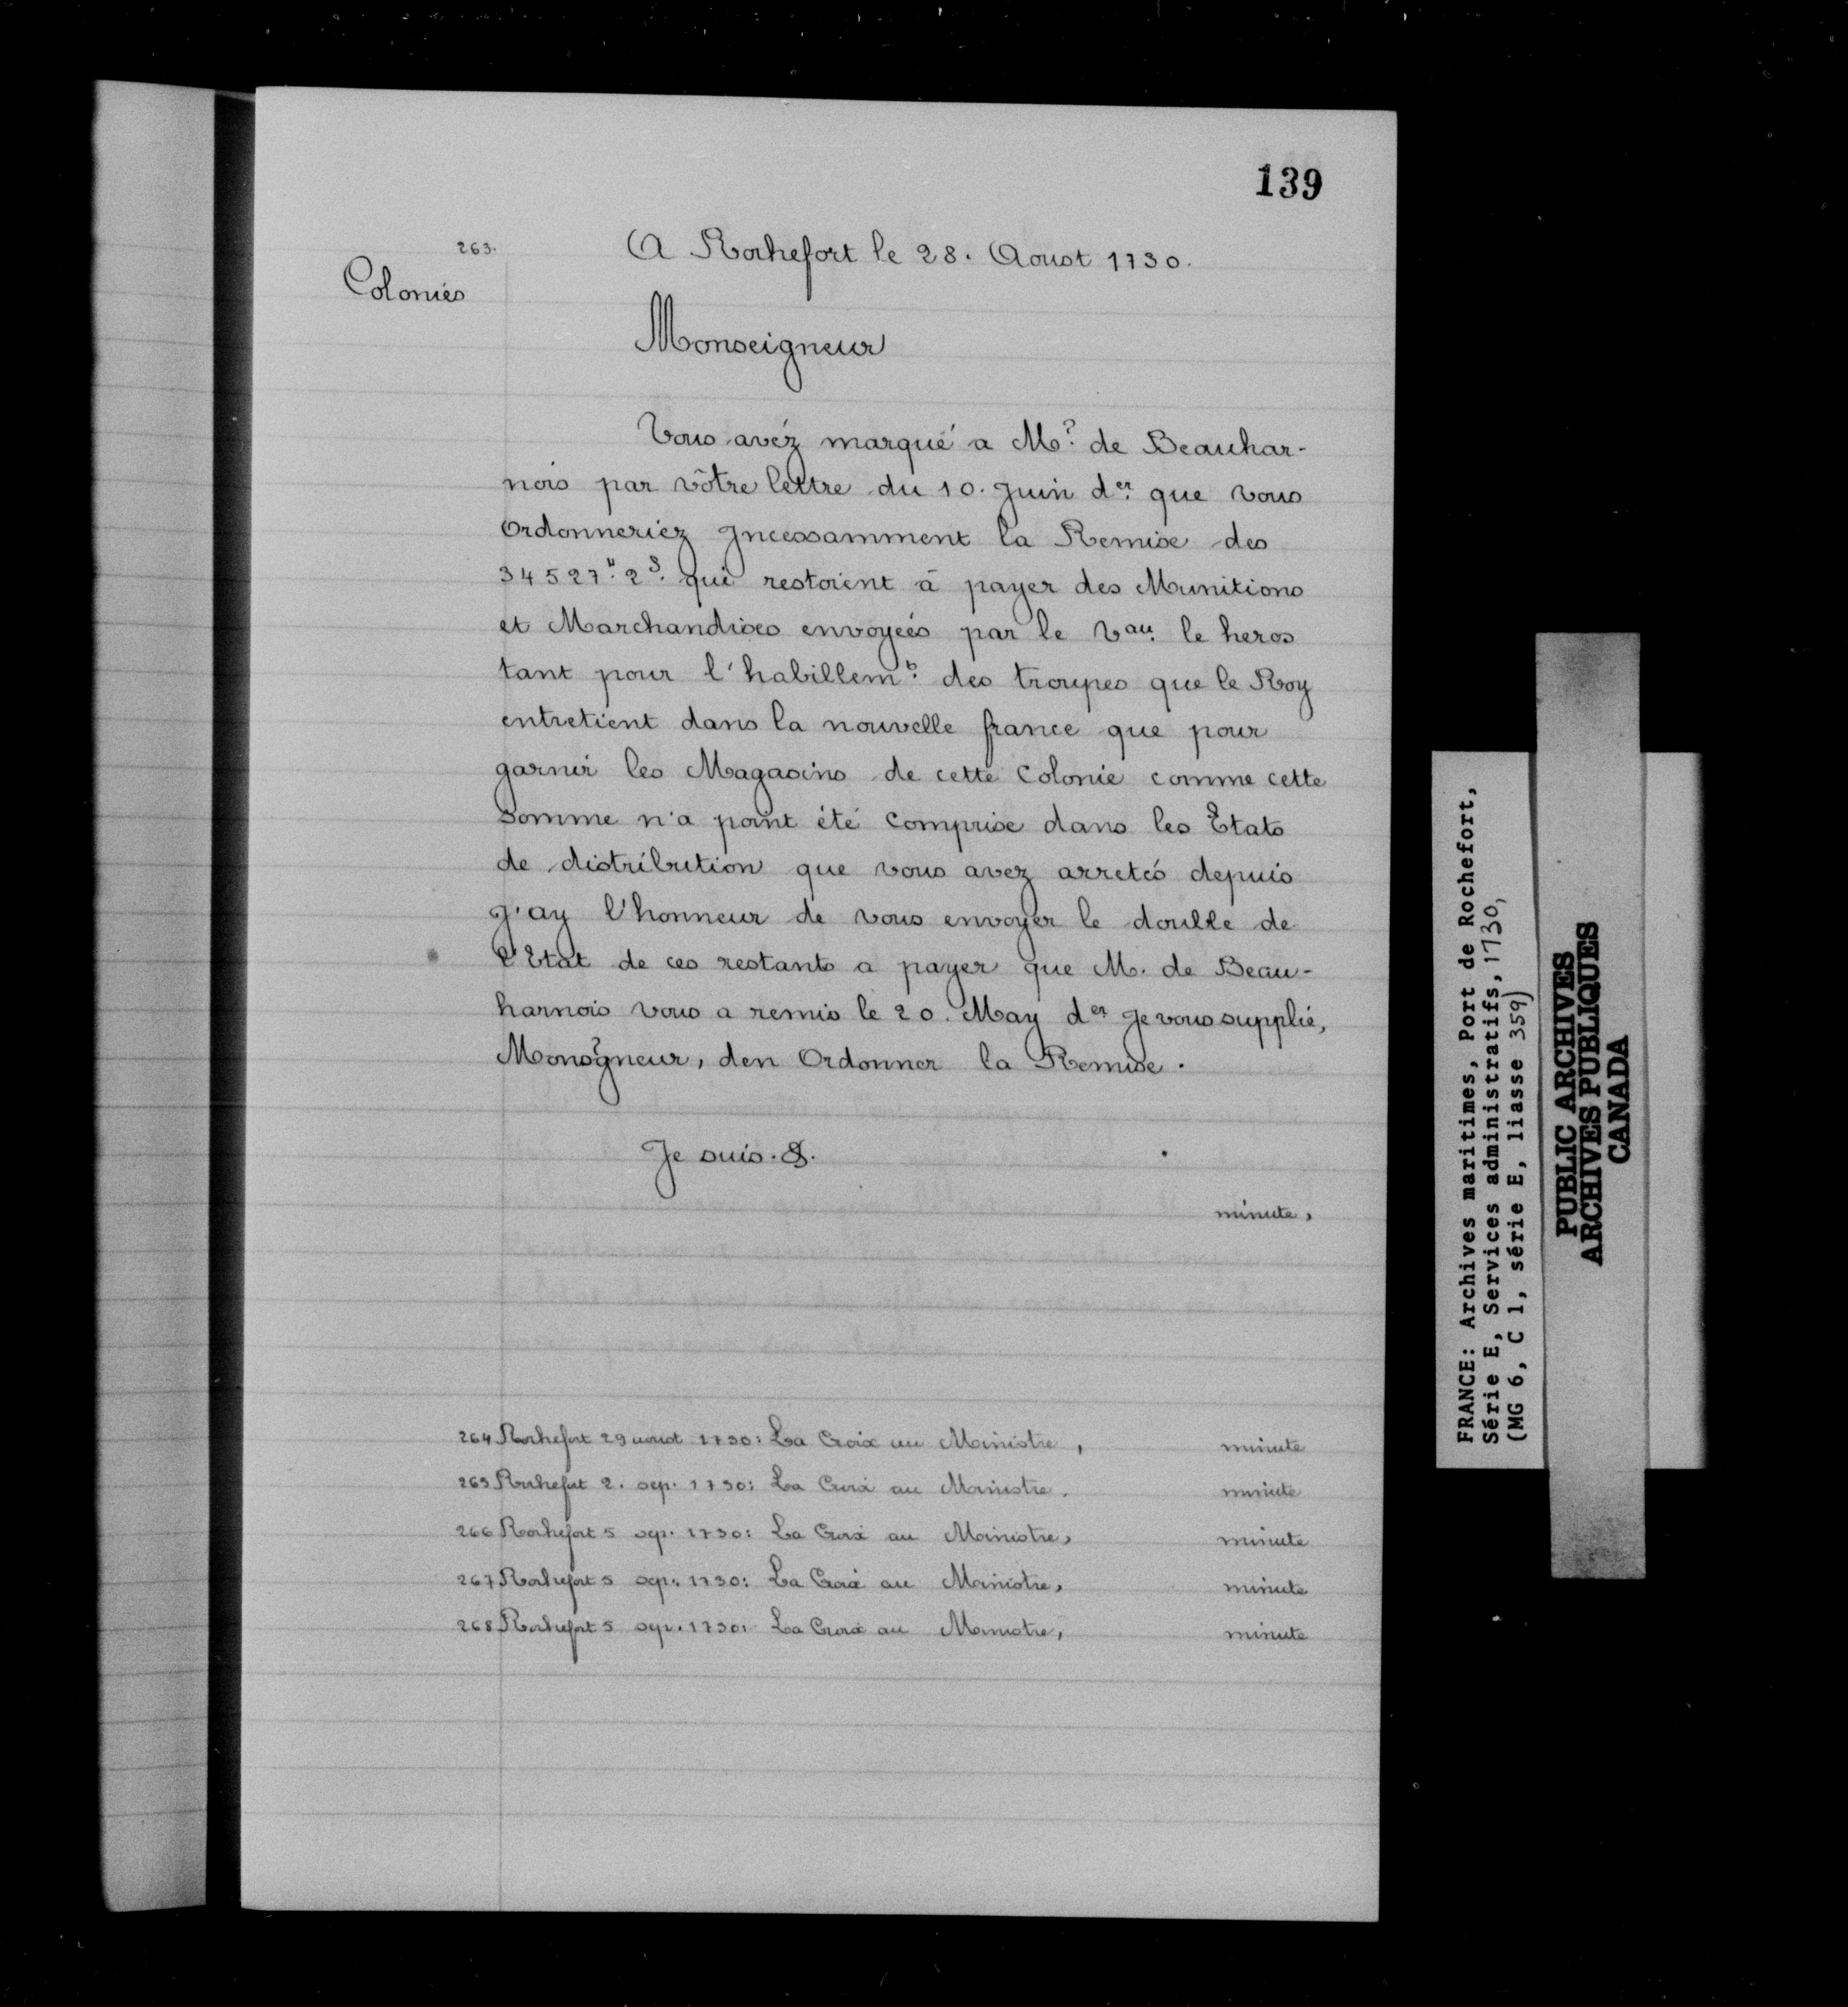 139
263.
A Rochefort le 28. Aoust 1730.
Colonies
Monseigneur
Vous avéz marqué a Mr. de Beauhar-
nois par vôtre lettre du 10. Juin der. que vous
Ordonneriez Jncessamment la Remise des
34527# 2s. qui restoient à payer des Munitions
et Marchandises envoyeés par le Vau. le heros
tant pour l'habillemt. des troupes que le Roy
entretient dans la nouvelle france que pour
garnir les Magasins de cette Colonie comme cette
Somme n'a point été Comprise dans les Etats
de distribution que vous avez arretés depuis
J'ay l'honneur de vous envoyer le double de
l'Etat de ces restants a payer que M. de Beau-
harnois vous a remis le 20. May der Je vous supplie,
Monsgneur, den Ordonner la Remise.
Je suis. &.
minute,
264 Rochefort 29 aoust 1730: La Croix au Ministre, minute
265 Rochefort 2. sep. 1730: La Croix au Ministre. minute
266 Rochefort 5 sep. 1730: La Croix au Ministre, minute
267 Rochefort 5 sep. 1730: La Croix au Ministre, minute
268 Rochefort 5 sep. 1730: La Croix au Ministre, minute
FRANCE: Archives maritimes, Port de Rochefort,
Série E, Services administratifs, 1730,
(MG 6, C 1, série E, liasse 359)
PUBLIC ARCHIVES
ARCHIVES PUBLIQUES
CANADA